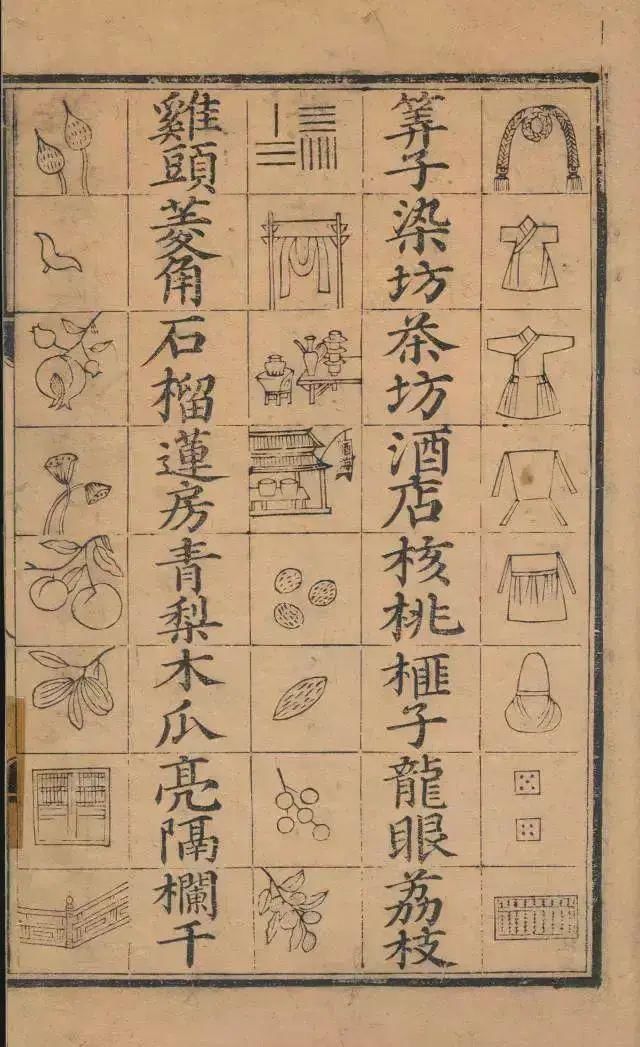 筭子
染坊
茶坊
酒店
核桃
榧子
龍眼
荔枝
雞頭
菱角
石榴
蓮房
青梨
木瓜
亮隔
欄干